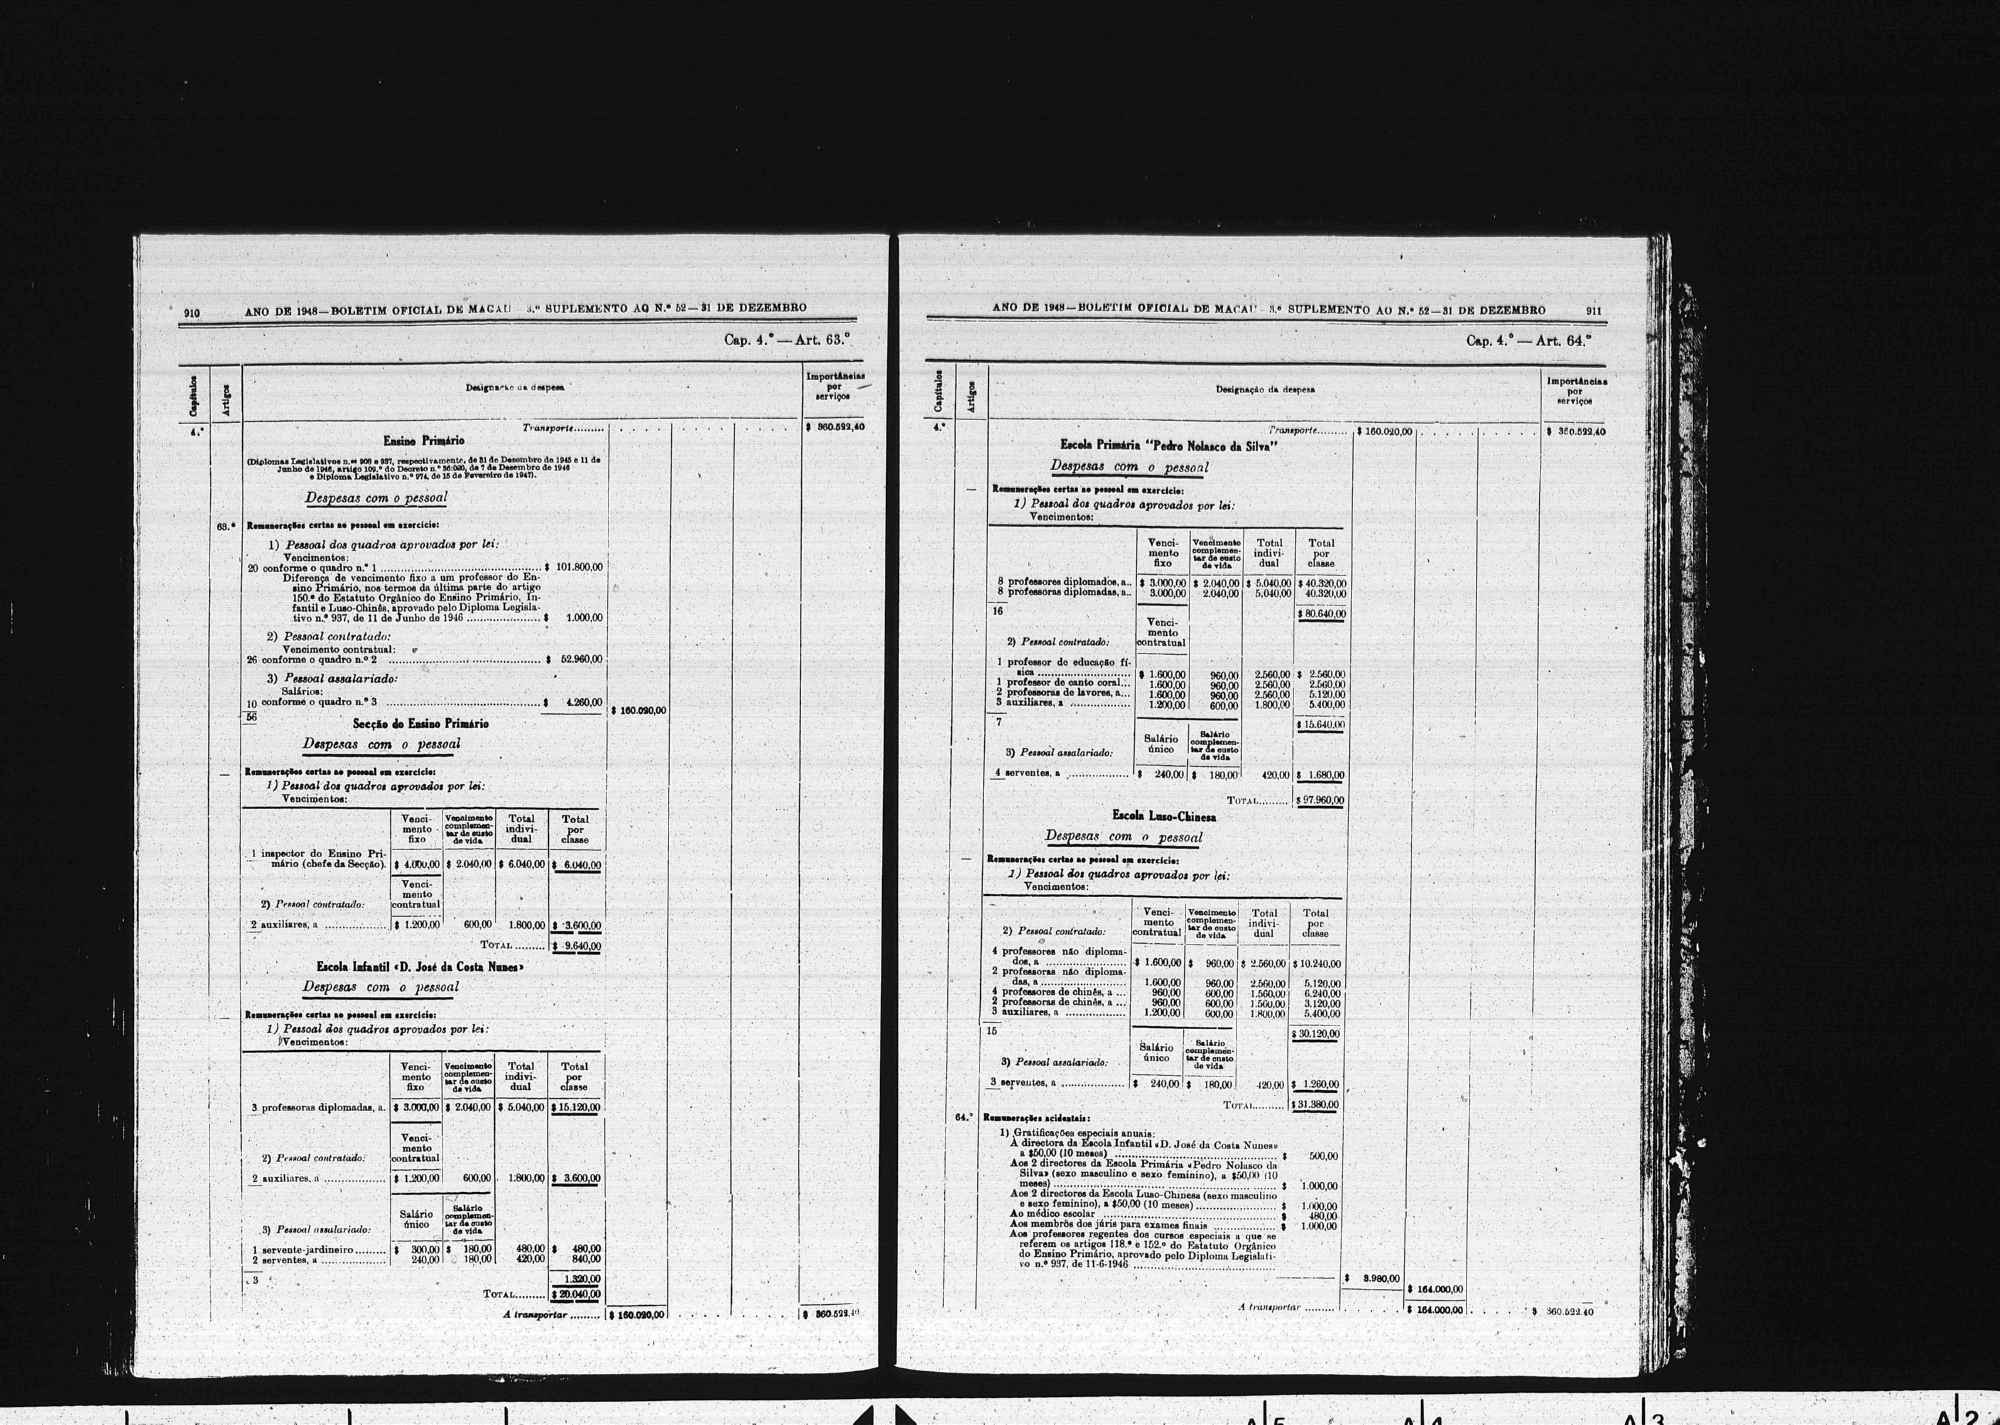 910 ANO DE 1948—BOLETIM OFICIAL DE MACAU 3.º SUPLEMENTO AO N.º 52—31 DE DEZEMBRO
Cap. 4.º — Art. 63.º
Capítulos Artigos Designação da despesa Importâncias por serviços
4.º Transporte......... $ 360.522,40
Ensino Primário
(Diplomas Legislativos n.os 908 e 937, respectivamente, de 31 de Dezembro de 1945 e 11 de
Junho de 1946, artigo 109.º do Decreto n.º 36:020, de 7 de Dezembro de 1946
e Diploma Legislativo n.º 974, de 15 de Fevereiro de 1947).
Despesas com o pessoal
63.º Remunerações certas ao pessoal em exercício:
1) Pessoal dos quadros aprovados por lei:
Vencimentos:
20 conforme o quadro n.º 1 ........ $ 101.800,00
Diferença de vencimento fixo a um professor do En-
sino Primário, nos termos da última parte do artigo
150.º do Estatuto Orgânico do Ensino Primário, In-
fantil e Luso-Chinês, aprovado pelo Diploma Legisla-
tivo n.º 937, de 11 de Junho de 1946 ........ $ 1.000,00
2) Pessoal contratado:
Vencimento contratual:
26 conforme o quadro n.º 2 ........ $ 52.960,00
3) Pessoal assalariado:
Salários:
10 conforme o quadro n.º 3 ........ $ 4.260,00
56 $ 160.020,00
Secção do Ensino Primário
Despesas com o pessoal
— Remunerações certas ao pessoal em exercício:
1) Pessoal dos quadros aprovados por lei:
Vencimentos:
Venci-mento fixo Vencimento complemen-tar de custo de vida Total indivi-dual Total por classe
1 inspector do Ensino Pri-
mário (chefe da Secção). $ 4.000,00 $ 2.040,00 $ 6.040,00 $ 6.040,00
Venci-
mento
2) Pessoal contratado: contratual
2 auxiliares, a ........ $ 1.200,00 600,00 1.800,00 $ 3.600,00
TOTAL ......... $ 9.640,00
Escola Infantil «D. José da Costa Nunes»
Despesas com o pessoal
— Remunerações certas ao pessoal em exercício:
1) Pessoal dos quadros aprovados por lei:
Vencimentos:
Venci-mento fixo Vencimento complemen-tar de custo de vida Total indivi-dual Total por classe
3 professoras diplomadas, a. $ 3.000,00 $ 2.040,00 $ 5.040,00 $ 15.120,00
Venci-
mento
2) Pessoal contratado: contratual
2 auxiliares, a ........ $ 1.200,00 600,00 1.800,00 $ 3.600,00
Salário único Salário complemen-tar de custo de vida
3) Pessoal assalariado:
1 servente-jardineiro ......... $ 300,00 $ 180,00 480,00 $ 480,00
2 serventes, a ........ 240,00 180,00 420,00 840,00
3 1.320,00
TOTAL......... $ 20.040,00
A transportar ......... $ 160.020,00 $ 360.522,40
ANO DE 1948—BOLETIM OFICIAL DE MACAU 3.º SUPLEMENTO AO N.º 52—31 DE DEZEMBRO 911
Cap. 4.º — Art. 64.º
Capítulos Artigos Designação da despesa Importâncias por serviços
4.º Transporte......... $ 160.020,00 $ 360.522,40
Escola Primária "Pedro Nolasco da Silva"
Despesas com o pessoal
— Remunerações certas ao pessoal em exercício:
1) Pessoal dos quadros aprovados por lei:
Vencimentos:
Venci-mento fixo Vencimento complemen-tar de custo de vida Total indivi-dual Total por classe
8 professores diplomados, a.. $ 3.000,00 $ 2.040,00 $ 5.040,00 $ 40.320,00
8 professoras diplomadas, a.. 3.000,00 2.040,00 5.040,00 40.320,00
16 $ 80.640,00
Venci-
mento
2) Pessoal contratado: contratual
1 professor de educação fí-
sica ........ $ 1.600,00 960,00 2.560,00 $ 2.560,00
1 professor de canto coral... 1.600,00 960,00 2.560,00 2.560,00
2 professoras de lavores, a... 1.600,00 960,00 2.560,00 5.120,00
3 auxiliares, a ........ 1.200,00 600,00 1.800,00 5.400,00
7 $ 15.640,00
Salário único Salário complemen-tar de custo de vida
3) Pessoal assalariado:
4 serventes, a ........ $ 240,00 $ 180,00 420,00 $ 1.680,00
TOTAL......... $ 97.960,00
Escola Luso-Chinesa
Despesas com o pessoal
— Remunerações certas ao pessoal em exercício:
1) Pessoal dos quadros aprovados por lei:
Vencimentos:
2) Pessoal contratado: Venci-mento contratual Vencimento complemen-tar de custo de vida Total indivi-dual Total por classe
4 professores não diploma-
dos, a ........ $ 1.600,00 $ 960,00 $ 2.560,00 $ 10.240,00
2 professoras não diploma-
das, a ........ 1.600,00 960,00 2.560,00 5.120,00
4 professores de chinês, a ... 960,00 600,00 1.560,00 6.240,00
2 professoras de chinês, a ... 960,00 600,00 1.560,00 3.120,00
3 auxiliares, a ........ 1.200,00 600,00 1.800,00 5.400,00
15 $ 30.120,00
Salário único Salário complemen-tar de custo de vida
3) Pessoal assalariado:
3 serventes, a ........ $ 240,00 $ 180,00 420,00 $ 1.260,00
TOTAL......... $ 31.380,00
64.º Remunerações acidentais:
1) Gratificações especiais anuais:
À directora da Escola Infantil «D. José da Costa Nunes»
a $50,00 (10 meses) ........ $ 500,00
Aos 2 directores da Escola Primária «Pedro Nolasco da
Silva» (sexo masculino e sexo feminino), a $50,00 (10
meses) ........ $ 1.000,00
Aos 2 directores da Escola Luso-Chinesa (sexo masculino
e sexo feminino), a $50,00 (10 meses) ........ $ 1.000,00
Ao médico escolar ........ $ 480,00
Aos membros dos júris para exames finais ........ $ 1.000,00
Aos professores regentes dos cursos especiais a que se
referem os artigos 118.º e 152.º do Estatuto Orgânico
do Ensino Primário, aprovado pelo Diploma Legislati-
vo n.º 937, de 11-6-1946 ........
$ 3.980,00
$ 164.000,00
A transportar ......... $ 164.000,00 $ 360.522,40